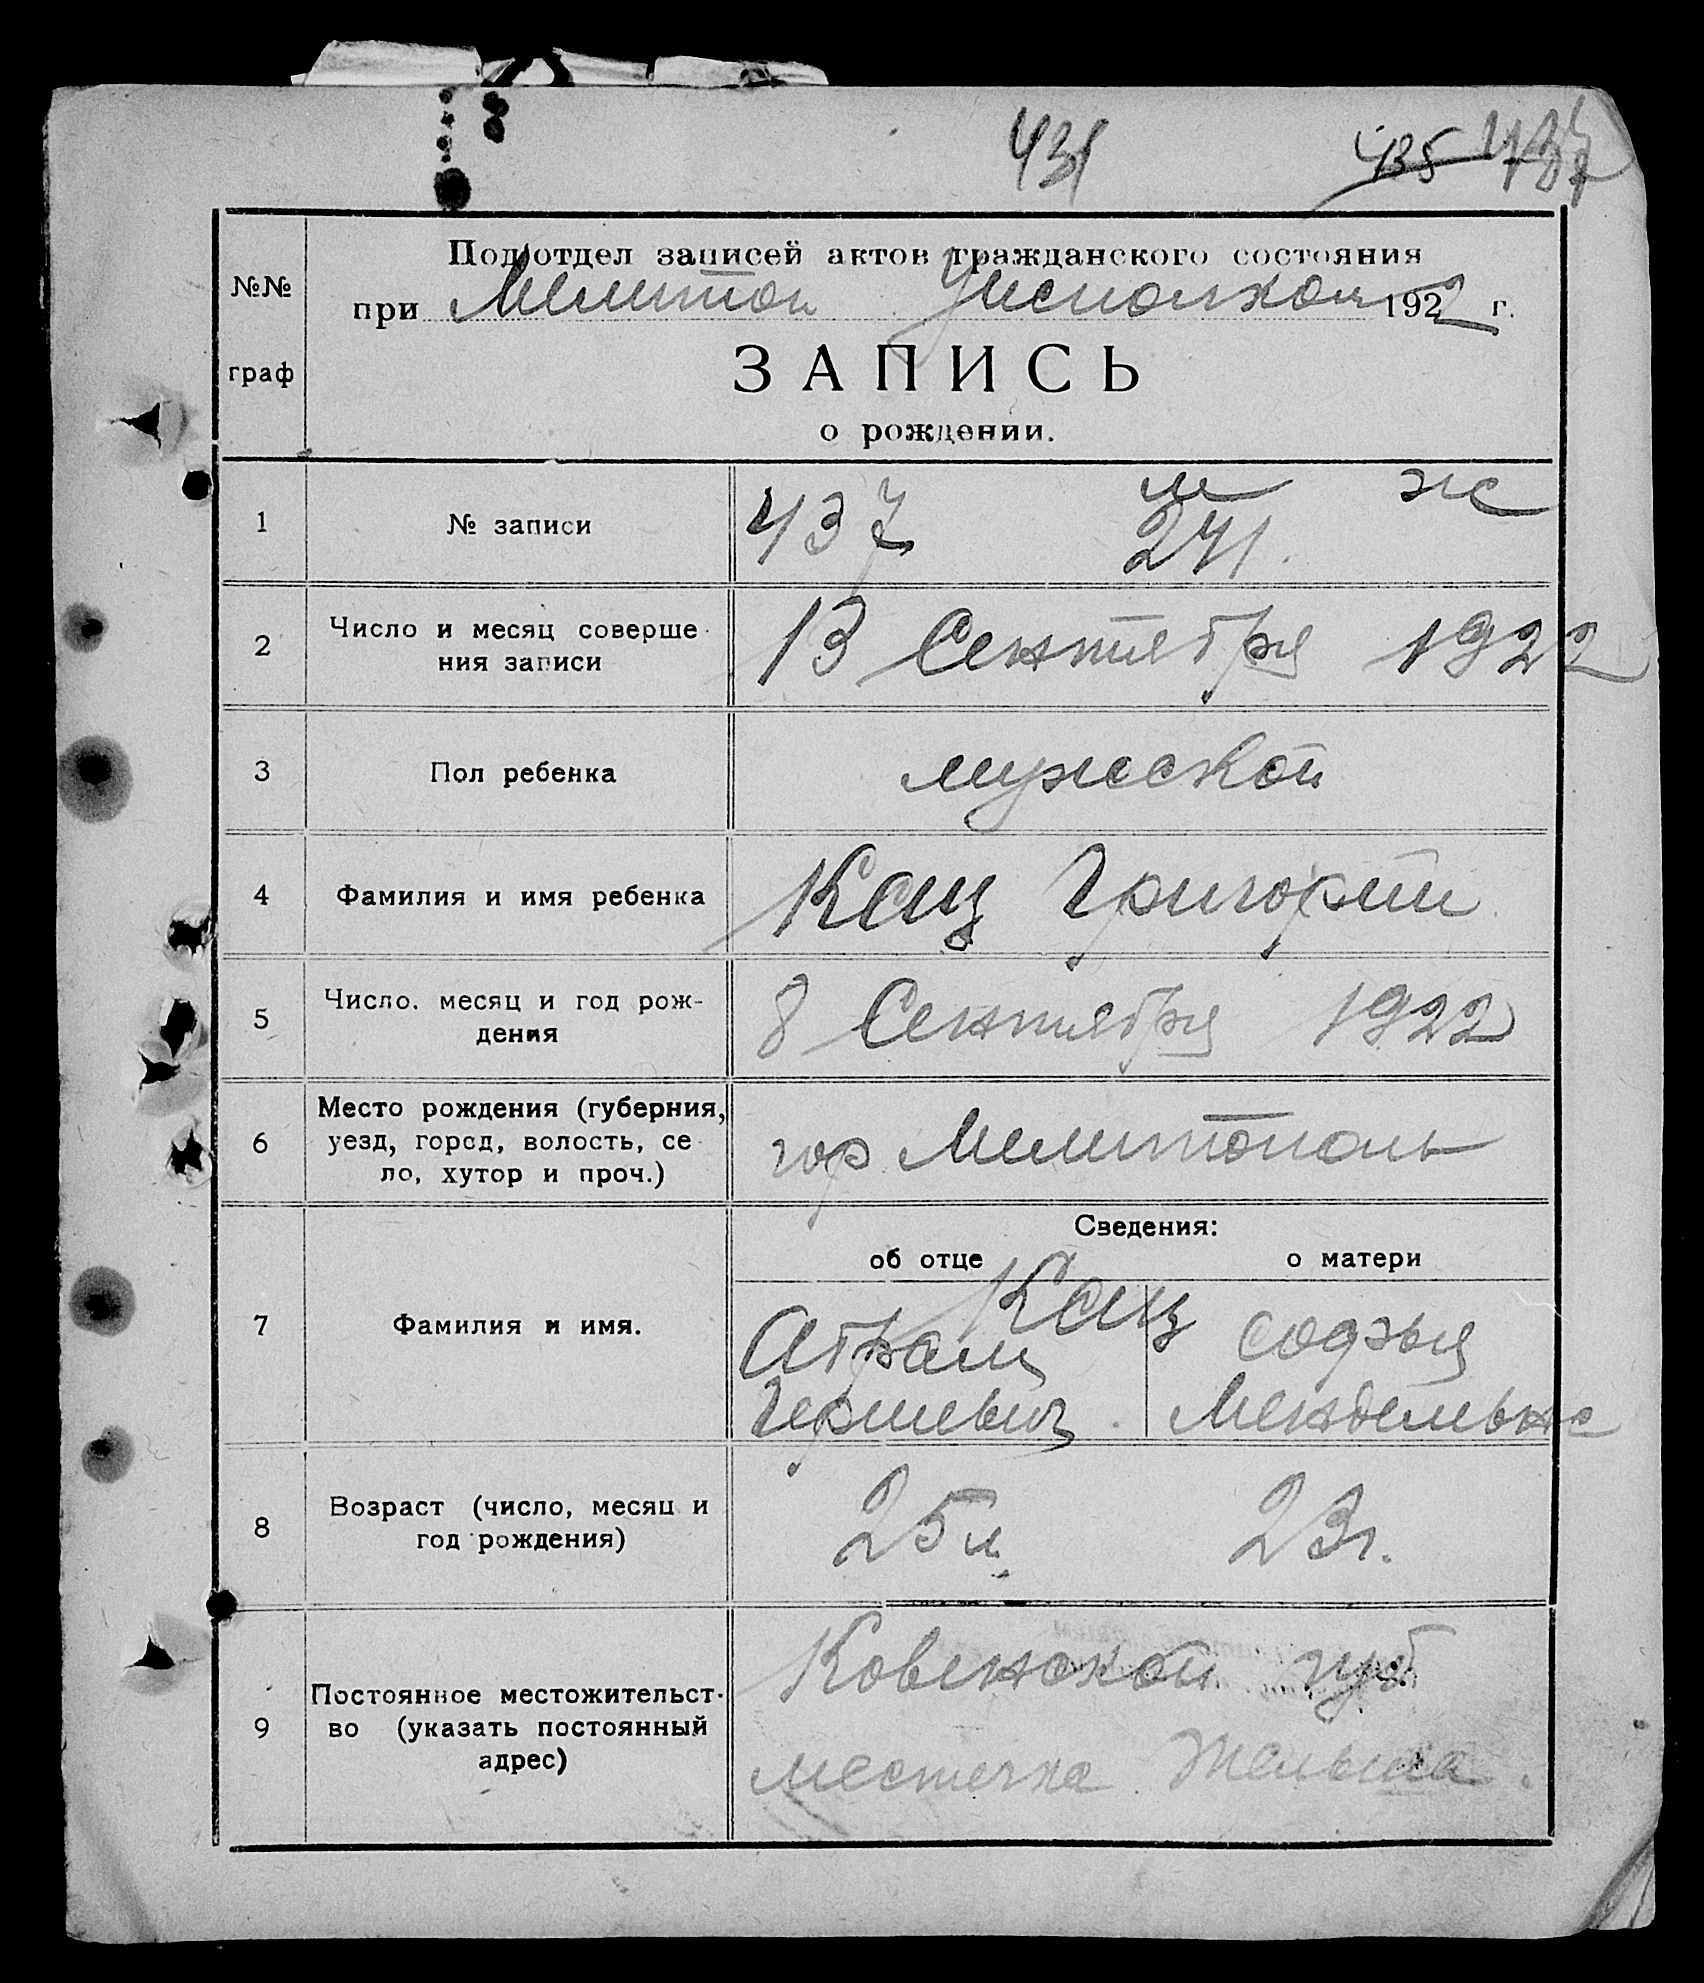 431 435 437
№№ граф
Подотдел записей актов гражданского состояния
при Мелитоп Уисполком 1922 г.
ЗАПИСЬ
о рождении.
м ж
1 № записи 437 241.
2 Число и месяц соверше-
ния записи 13 Сентября 1922
3 Пол ребенка мужской
4 Фамилия и имя ребенка Кац Григорий
5 Число, месяц и год рож-
дения 8 Сентября 1922
6 Место рождения (губерния,
уезд, город, волость, се-
ло, хутор и проч.) гор Мелитополь
Сведения:
об отце о матери
7 Фамилия и имя. Кац
Абрам Софья
Гершевич Мендельвна
8 Возраст (число, месяц и
год рождения) 25 л. 23 г.
9 Постоянное местожительст-
во (указать постоянный
адрес) Ковенской губ
местечка